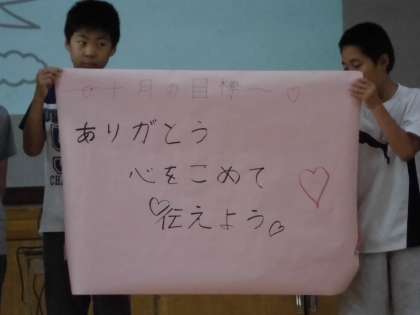 ♡十月の目標〜♡
ありがとう
心をこめて
伝えよう